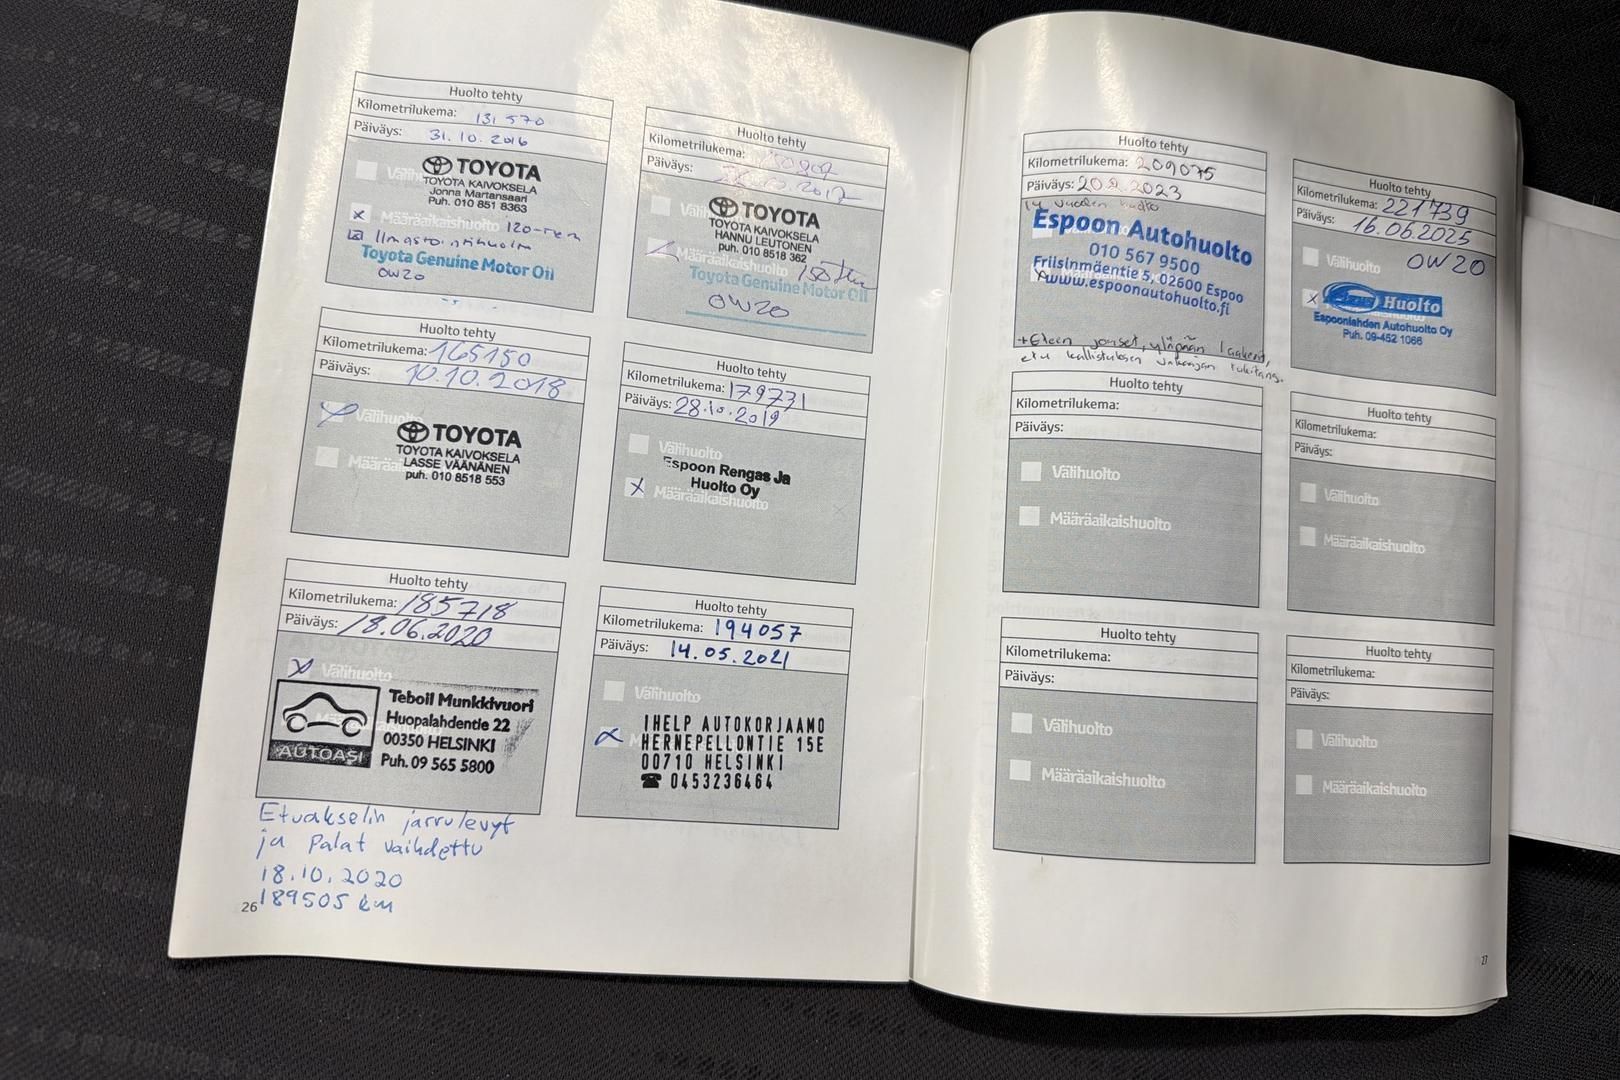 Huolto tehty
Kilometrilukema: 131 570
Päiväys: 31.10.2016
TOYOTA
TOYOTA KAIVOKSELA
Jonna Martansaari
Puh. 010 851 8363
x Määräaikaishuolto 120-
Ilmastointihuolto
Toyota Genuine Motor Oil
0W20
Huolto tehty
Kilometrilukema:
Päiväys:
TOYOTA
TOYOTA KAIVOKSELA
HANNU LEUTONEN
puh. 010 8518 362
Määräaikaishuolto
Toyota Genuine Motor Oil
0W20
Huolto tehty
Kilometrilukema: 165150
Päiväys: 10.10.2018
Välihuolto
TOYOTA
TOYOTA KAIVOKSELA
LASSE VÄÄNÄNEN
puh. 010 8518 553
Huolto tehty
Kilometrilukema: 179731
Päiväys: 28.10.2019
Välihuolto
Espoon Rengas Ja
Huolto Oy
x Määräaikaishuolto
Huolto tehty
Kilometrilukema: 185718
Päiväys: 18.06.2020
x Välihuolto
Teboil Munkkivuori
Huopalahdentie 22
00350 HELSINKI
Puh. 09 565 5800
AUTOASI
Etuakselin jarrulevyt
ja palat vaihdettu
18.10.2020
189505 km
26
Huolto tehty
Kilometrilukema: 194057
Päiväys: 14.05.2021
Välihuolto
IHELP AUTOKORJAAMO
HERNEPELLONTIE 15E
00710 HELSINKI
☎ 0453236464
Huolto tehty
Kilometrilukema: 209075
Päiväys: 20.2.2023
14 vuoden huolto
Espoon Autohuolto
010 567 9500
Friisinmäentie 5, 02600 Espoo
www.espoonautohuolto.fi
+Eteen jouset, yläpään laakerit,
Huolto tehty
Kilometrilukema: 221739
Päiväys: 16.06.2025
Välihuolto 0W20
x Huolto
Espoonlahden Autohuolto Oy
Puh. 09-452 1066
Huolto tehty
Kilometrilukema:
Päiväys:
Välihuolto
Määräaikaishuolto
Huolto tehty
Kilometrilukema:
Päiväys:
Välihuolto
Määräaikaishuolto
Huolto tehty
Kilometrilukema:
Päiväys:
Välihuolto
Määräaikaishuolto
Huolto tehty
Kilometrilukema:
Päiväys:
Välihuolto
Määräaikaishuolto
27